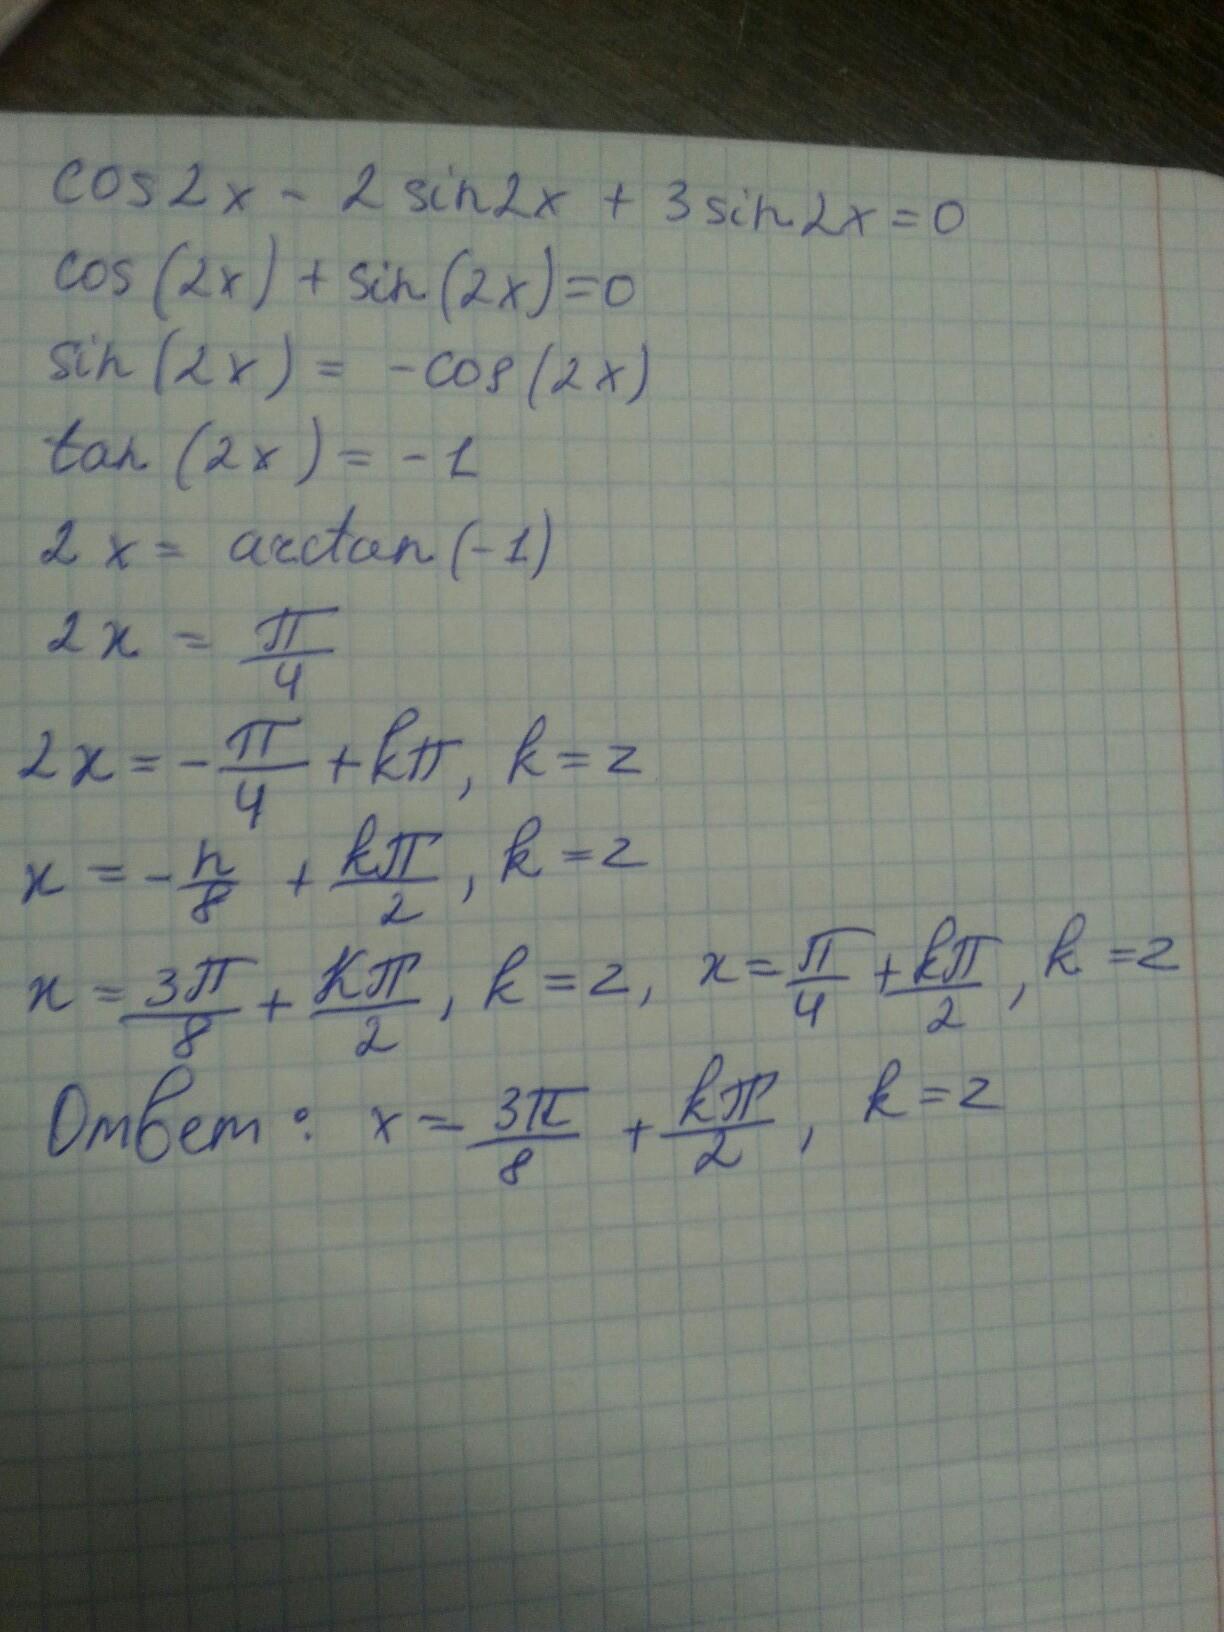 cos2x - 2sin2x + 3sin2x = 0
cos(2x) + sin(2x) = 0
sin(2x) = -cos(2x)
tan(2x) = -1
2x = arctan(-1)
2x = π/4
2x = -π/4 + kπ, k = z
x = -π/8 + kπ/2, k = z
x = 3π/8 + Kπ/2, k = z, x = π/4 + kπ/2, k = z
Ответ: x = 3π/8 + kπ/2, k = z